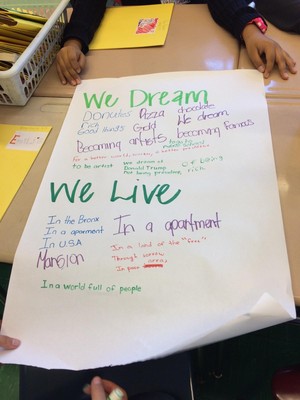 We Dream
Donuts Pizza chocolate
Rich
Good Hands Gold We dream
Becoming artists becoming famous
For a better world
to be artist
We dream of
Donald Trump
Not being president
Of being
rich
We Live
In the Bronx
In a apartment
In U.S.A
Mansion
In a apartment
In a land of the "free"
Through
In poor
In a world full of people